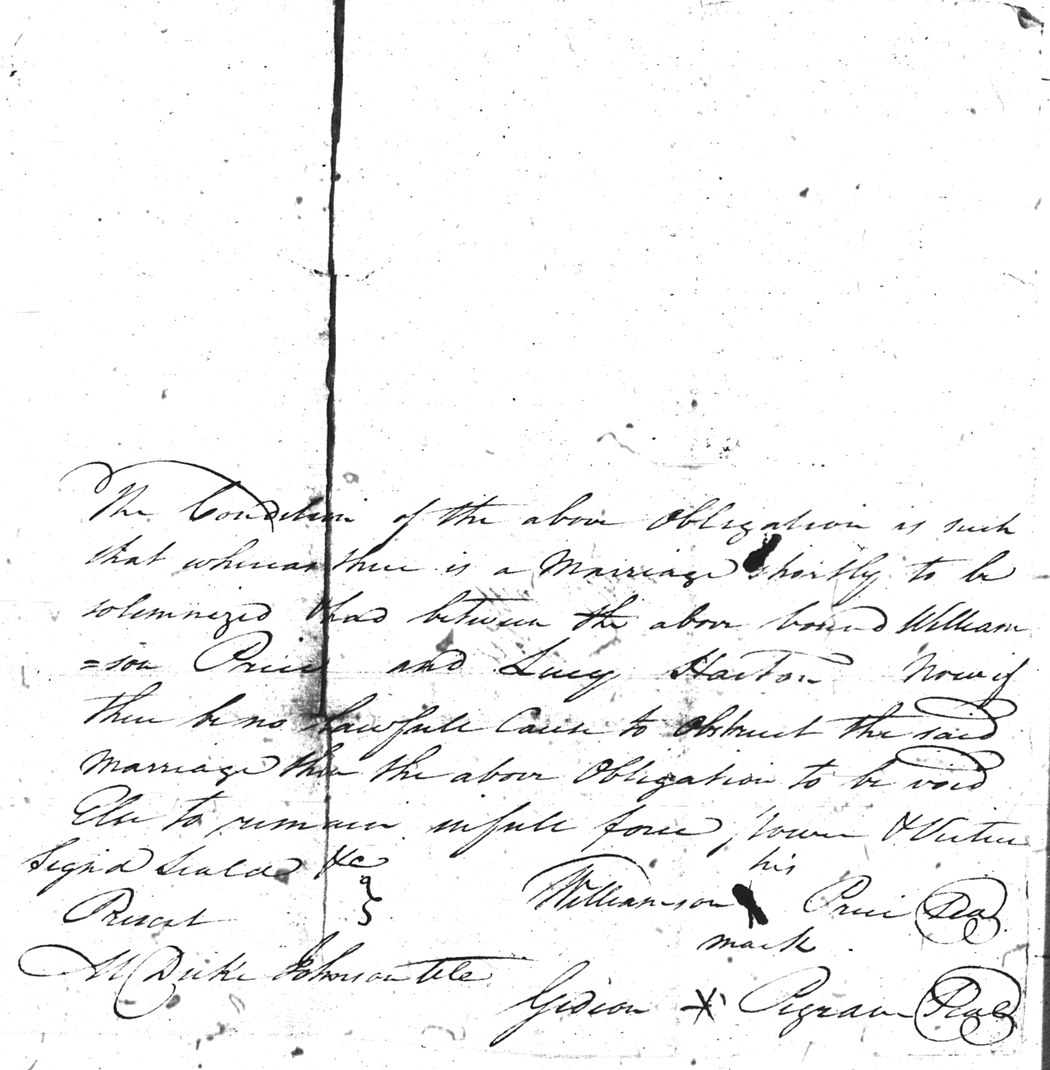 The Condition of the above Obligation is such
that whereas there is a Marriage shortly to be
solemnized & had between the above bound William
=son Price and Lucy Harton Now if
there be no lawfull Cause to Obstruct the said
Marriage then the above Obligation to be void
Else to remain in full force power & Virtue
Sign'd Seald &c
his
Present
Williamson Price Seal
mark
M Duke Johnson
Gidion X Pegram Seal